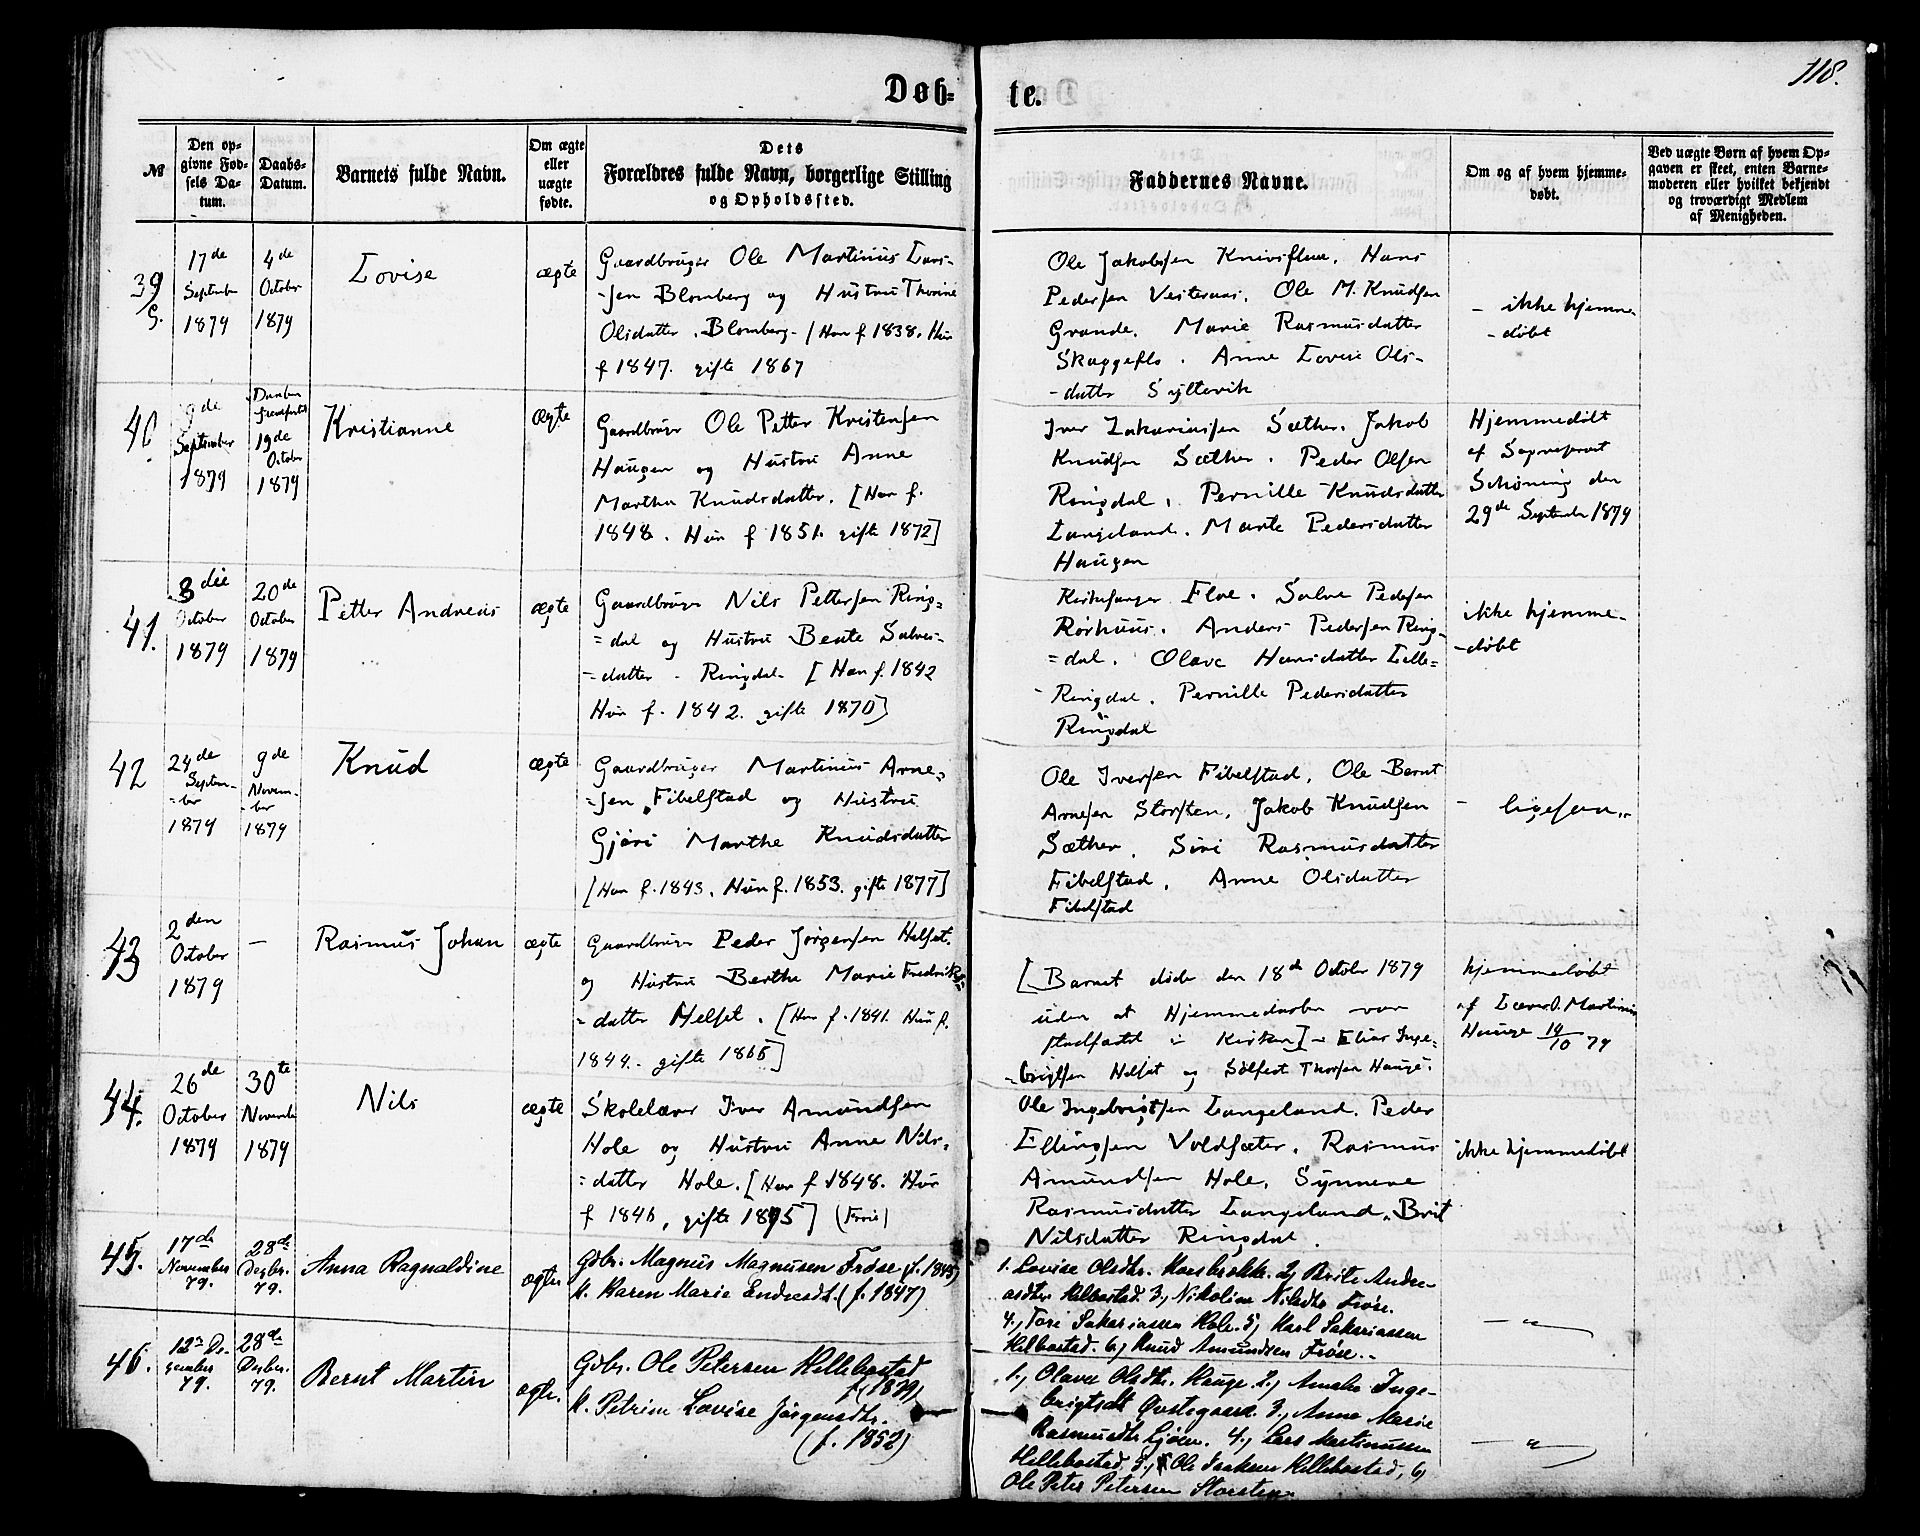 118.
Døb- te.
№
Den op-
givne Fød-
sels Da-
tum.
Daabs-
Datum.
Barnets fulde Navn.
Om ægte
eller
uægte
fødte.
Dets
Forældres fulde Navn, borgerlige Stilling
og Opholdssted.
Faddernes Navne.
Om og af hvem hjemme-
døbt.
Ved uægte Børn af hvem Op-
gaven er skeet, enten Barne-
moderen eller hvilket bekjendt
og troværdigt Medlem
af Menigheden.
39
S.
17de
September
1879
4de
October
1879
Lovise
ægte
Gaardbruger Ole Martinus Lars-
-sen Blomberg og Hustru Thorine
Olsdatter. Blomberg. [Han f 1838. Hun
f 1847. gifte 1867
Ole Jakobsen Knivsflaae. Hans
Pedersen Vesteraas. Ole M. Knudsen
Grande. Marie Rasmusdatter
Skaggeflo. Anne Lovise Ols-
-datter Syltevik
- ikke hjemme-
-døbt
40
9de
September
1879
Daaben
fremført
19de
October
1879
Kristianne
Ægte
Gaardbruger Ole Petter Kristensen
Haugen og Hustru Anne
Martha Knudsdatter. [Han f.
1848. Hun f 1851. gifte 1872]
Iver Zakariassen Sæther. Jakob
Knudsen Sæther. Peder Olsen
Ringdal. Pernille Knudsdatter
Langeland. Marte Pedersdatter
Haugen
Hjemmedøbt
af Sogneprest
Schøning den
29de September 1879
41.
3die
October
1879
20de
October
1879
Petter Andreas
ægte
Gaardbruger Nils Pettersen Ring=
=dal og Hustru Beate Salves-
=datter - Ringdal. [Han f. 1842
Hun f. 1842. gifte 1870]
Kirkesanger Floe. Salve Pedersen
Rørhuus. Anders Pedersen Ring-
=dal. Olave Hansdatter Lille=
-Ringdal. Pernille Pedersdatter
Ringdal
ikke hjemme-
-døbt
42
24de
Septem-
-ber
1879
9de
Novem-
-ber
1879
Knud
ægte
Gaardbruger Martinus Arne-
-sen Fibelstad og Hustru
Gjøri Marthe Knudsdatter
[Han f. 1843. Hun f. 1853. gifte 1877]
Ole Iversen Fibelstad. Ole Bernt
Arnesen Storsten. Jakob Knudsen
Sæther. Siri Rasmusdatter
Fibelstad. Anne Olsdatter
Fibelstad
- ligesaa -
43
2den
October
1879
-
Rasmus Johan
ægte
Gaardbruger Peder Jørgensen Helset.
og Hustru Berthe Marie Fredriks-
=datter Helset. [Han f. 1841. Hun f.
1844. gifte 1865]
[Barnet døde den 18de October 1879
uden at Hjemmedaaben var
stadfæstet i Kirken] - Elias Inge-
-brigtsen Helset og Sølfest Thorsen Hauge.
hjemmedøbt
af Lærer O. Martinus
Hauge 14/10 79
44.
26de
October
1879
30te
November
1879
Nils
ægte
Skolelærer Iver Amundsen
Hole og Hustru Anne Nils-
=datter Hole. [Han f 1848. Hun
f 1846, gifte 1875] (Frøis)
Ole Ingebrigtsen Langeland. Peder
Ellingsen Voldsæter. Rasmus
Amundsen Hole. Synneve
Rasmusdatter Langeland. Brit
Nilsdatter Ringdal.
ikke hjemmedøbt
45.
17de
November
79.
28de
Dezbr.
79.
Anna Ragnaldine
ægte
Gdbr. Magnus Magnusen Frøse (f. 1845)
k. Karen Marie Endresdt. (f. 1847)
1. Lovise Olsdtr. Korsbrekke. 2) Brite Andre-
asdtr Hellbostad. 3) Nikoline Nilsdtr Frøse.
4) Tore Sakariassen Hole. 5) Karl Sakariassen
Hellbostad. 6) Knud Amundsen Frøse.
- " -
46.
12te De-
zember
79.
28de
Dezbr.
79.
Bernt Martin
ægte.
Gdbr. Ole Petersen Hellebostad
k. Petrine Lovise Jørgensdtr.
(f. 1852)
1) Olave Olsdtr. Hauge. 2) Amalie Inge-
brigtsdt Øvstegaard. 3) Anne Marie
Rasmusdtr Ljøen. 4) Lars Martinussen
Hellebostad. 5) Ole Isaksen Hellebostad, 6)
Ole Peter Petersen Storsten.
- " -